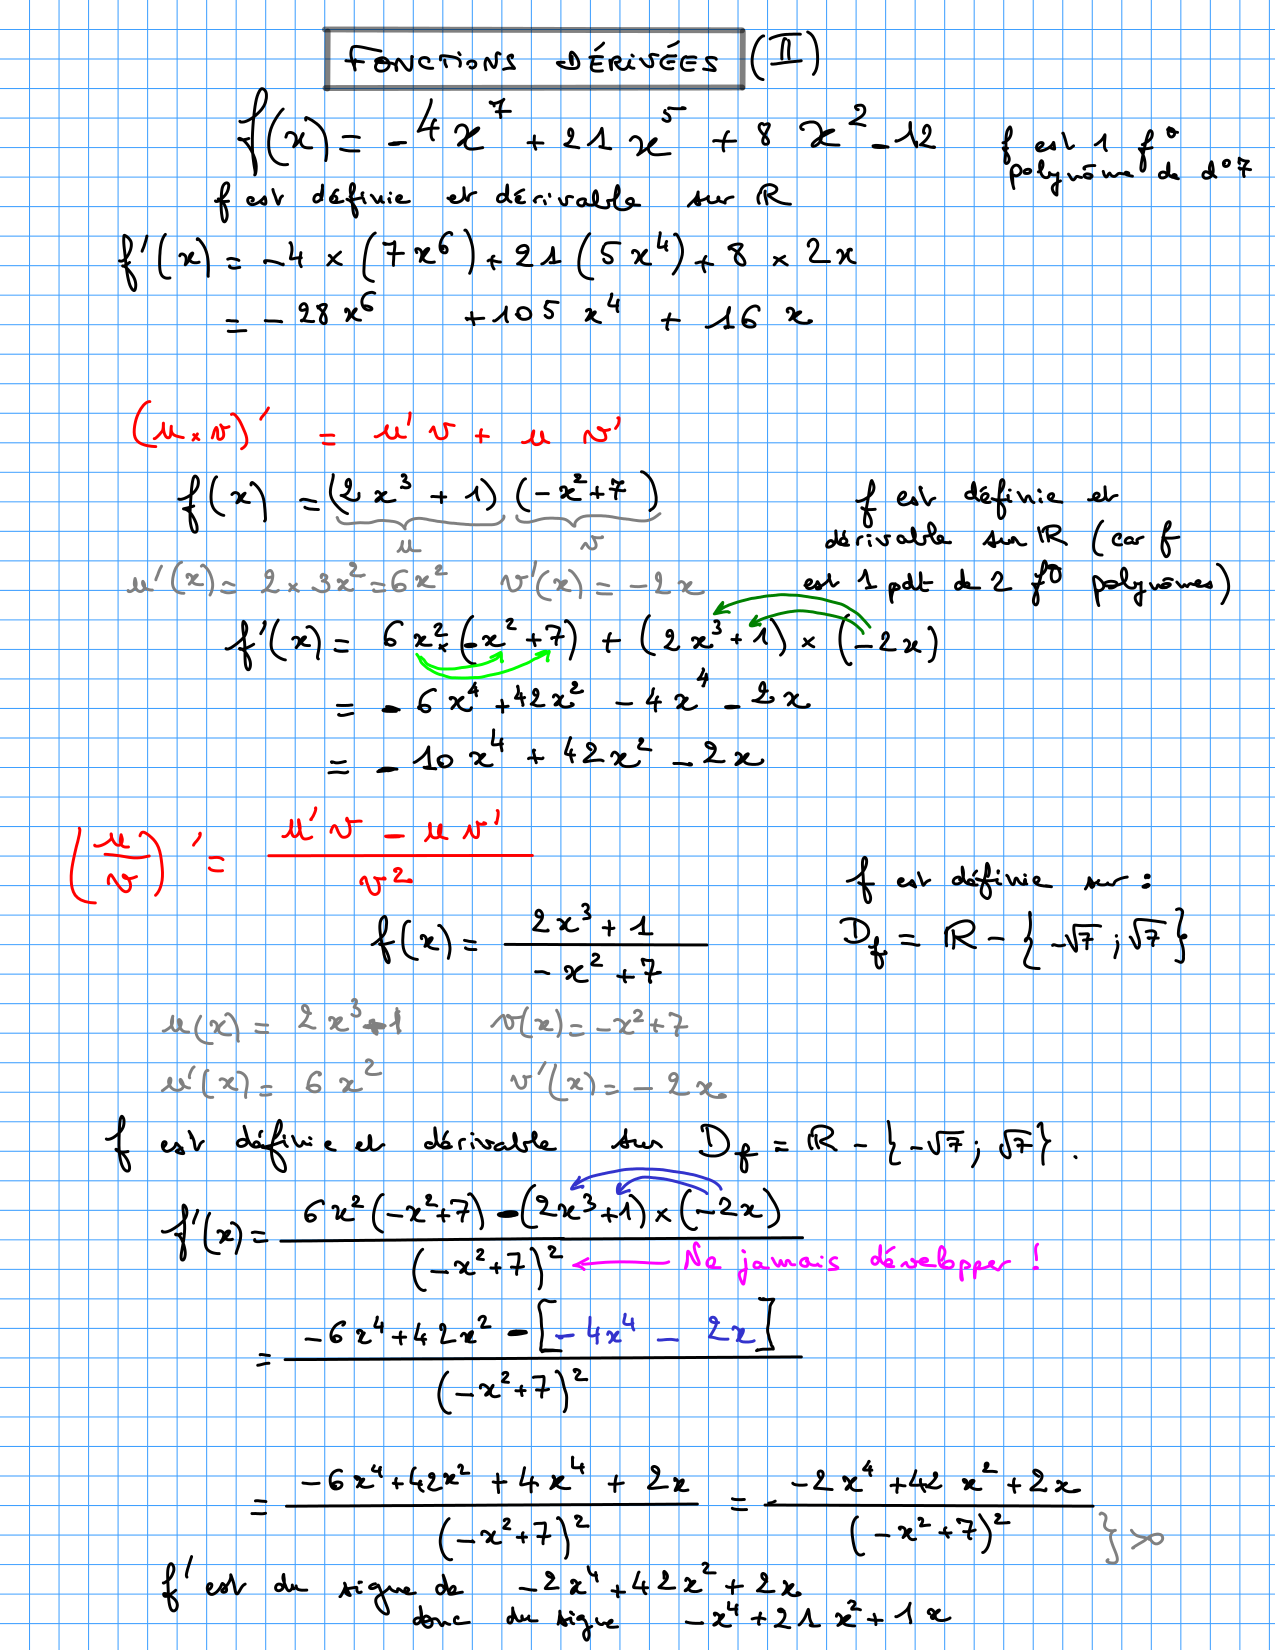 FONCTIONS DÉRIVÉES (II)
f(x) = -4x⁷ + 21x⁵ + 8x² - 12
f est 1 f° polynôme de d°7
f est définie et dérivable sur ℝ
f'(x) = -4 × (7x⁶) + 21(5x⁴) + 8 × 2x
= -28x⁶ + 105x⁴ + 16x
(u × v)' = u'v + u v'
f(x) = (2x³ + 1)(-x² + 7)
u v
f est définie et
dérivable sur ℝ (car f
est 1 pdt de 2 f° polynômes)
u'(x) = 2 × 3x² = 6x² v'(x) = -2x
f'(x) = 6x² × (-x² + 7) + (2x³ + 1) × (-2x)
= -6x⁴ + 42x² - 4x⁴ - 2x
= -10x⁴ + 42x² - 2x
(u/v)' = (u'v - u v')/v²
f(x) = (2x³ + 1)/(-x² + 7)
f est définie sur :
D_f = ℝ - {-√7 ; √7}
u(x) = 2x³ + 1 v(x) = -x² + 7
u'(x) = 6x² v'(x) = -2x
f est définie et dérivable sur D_f = ℝ - {-√7 ; √7}.
f'(x) = (6x²(-x² + 7) - (2x³ + 1) × (-2x))/(-x² + 7)² ← Ne jamais développer !
= (-6x⁴ + 42x² - [-4x⁴ - 2x])/(-x² + 7)²
= (-6x⁴ + 42x² + 4x⁴ + 2x)/(-x² + 7)² = (-2x⁴ + 42x² + 2x)/(-x² + 7)² } >0
f' est du signe de -2x⁴ + 42x² + 2x
donc du signe -x⁴ + 21x² + 1x